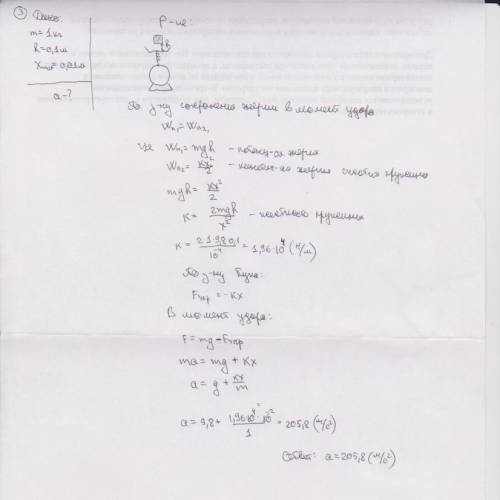 ③ Дано:
Р-ие:
m=1кг
h=0,1м
Xmax=0,01м
a-?
h
По з-ну сохранения энергии в момент удара
Wп₁=Wп₂,
где Wп₁=mgh - потенц-ая энергия
Wп₂=kx²/2 - потенц-ая энергия сжатия пружины
mgh=kx²/2
k=2mgh/x² - жесткость пружины
k=2·1·9,8·0,1/10⁻⁴=1,96·10⁴(н/м)
По з-ну Гука:
Fупр=-kx
В момент удара:
F=mg-Fупр
ma=mg+kx
a=g+kx/m
a=9,8+1,96·10⁴·10⁻²/1=205,8(м/с²)
Ответ: a=205,8(м/с²)